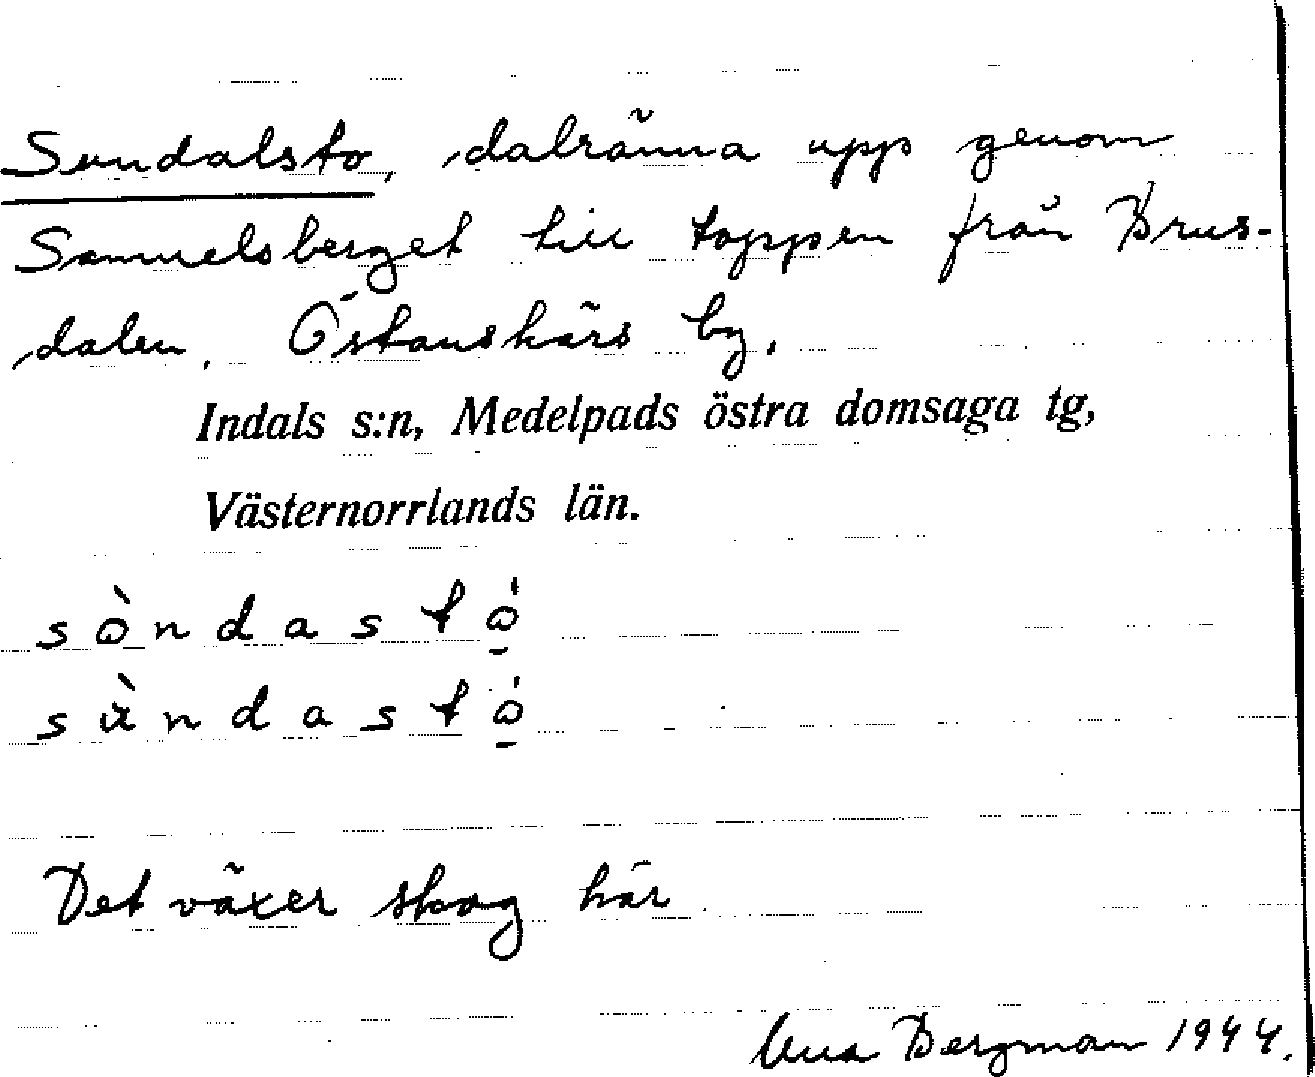 Sundalsto, dalränna upp genom
Samuelsberget till toppen från Brus-
dalen. Östanskärs by.
Indals s:n, Medelpads östra domsaga tg,
Västernorrlands län.
sòndastó̱
sùndastó̱
Det växer skog här.
Una Bergman 1944.